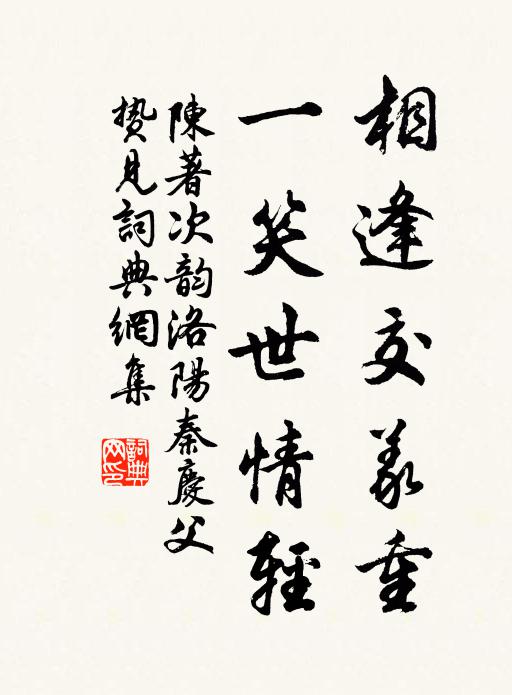 相逢交義重
一笑世情輕
陳著次韵洛陽秦慶父
贄見詞典網集
詞典網印